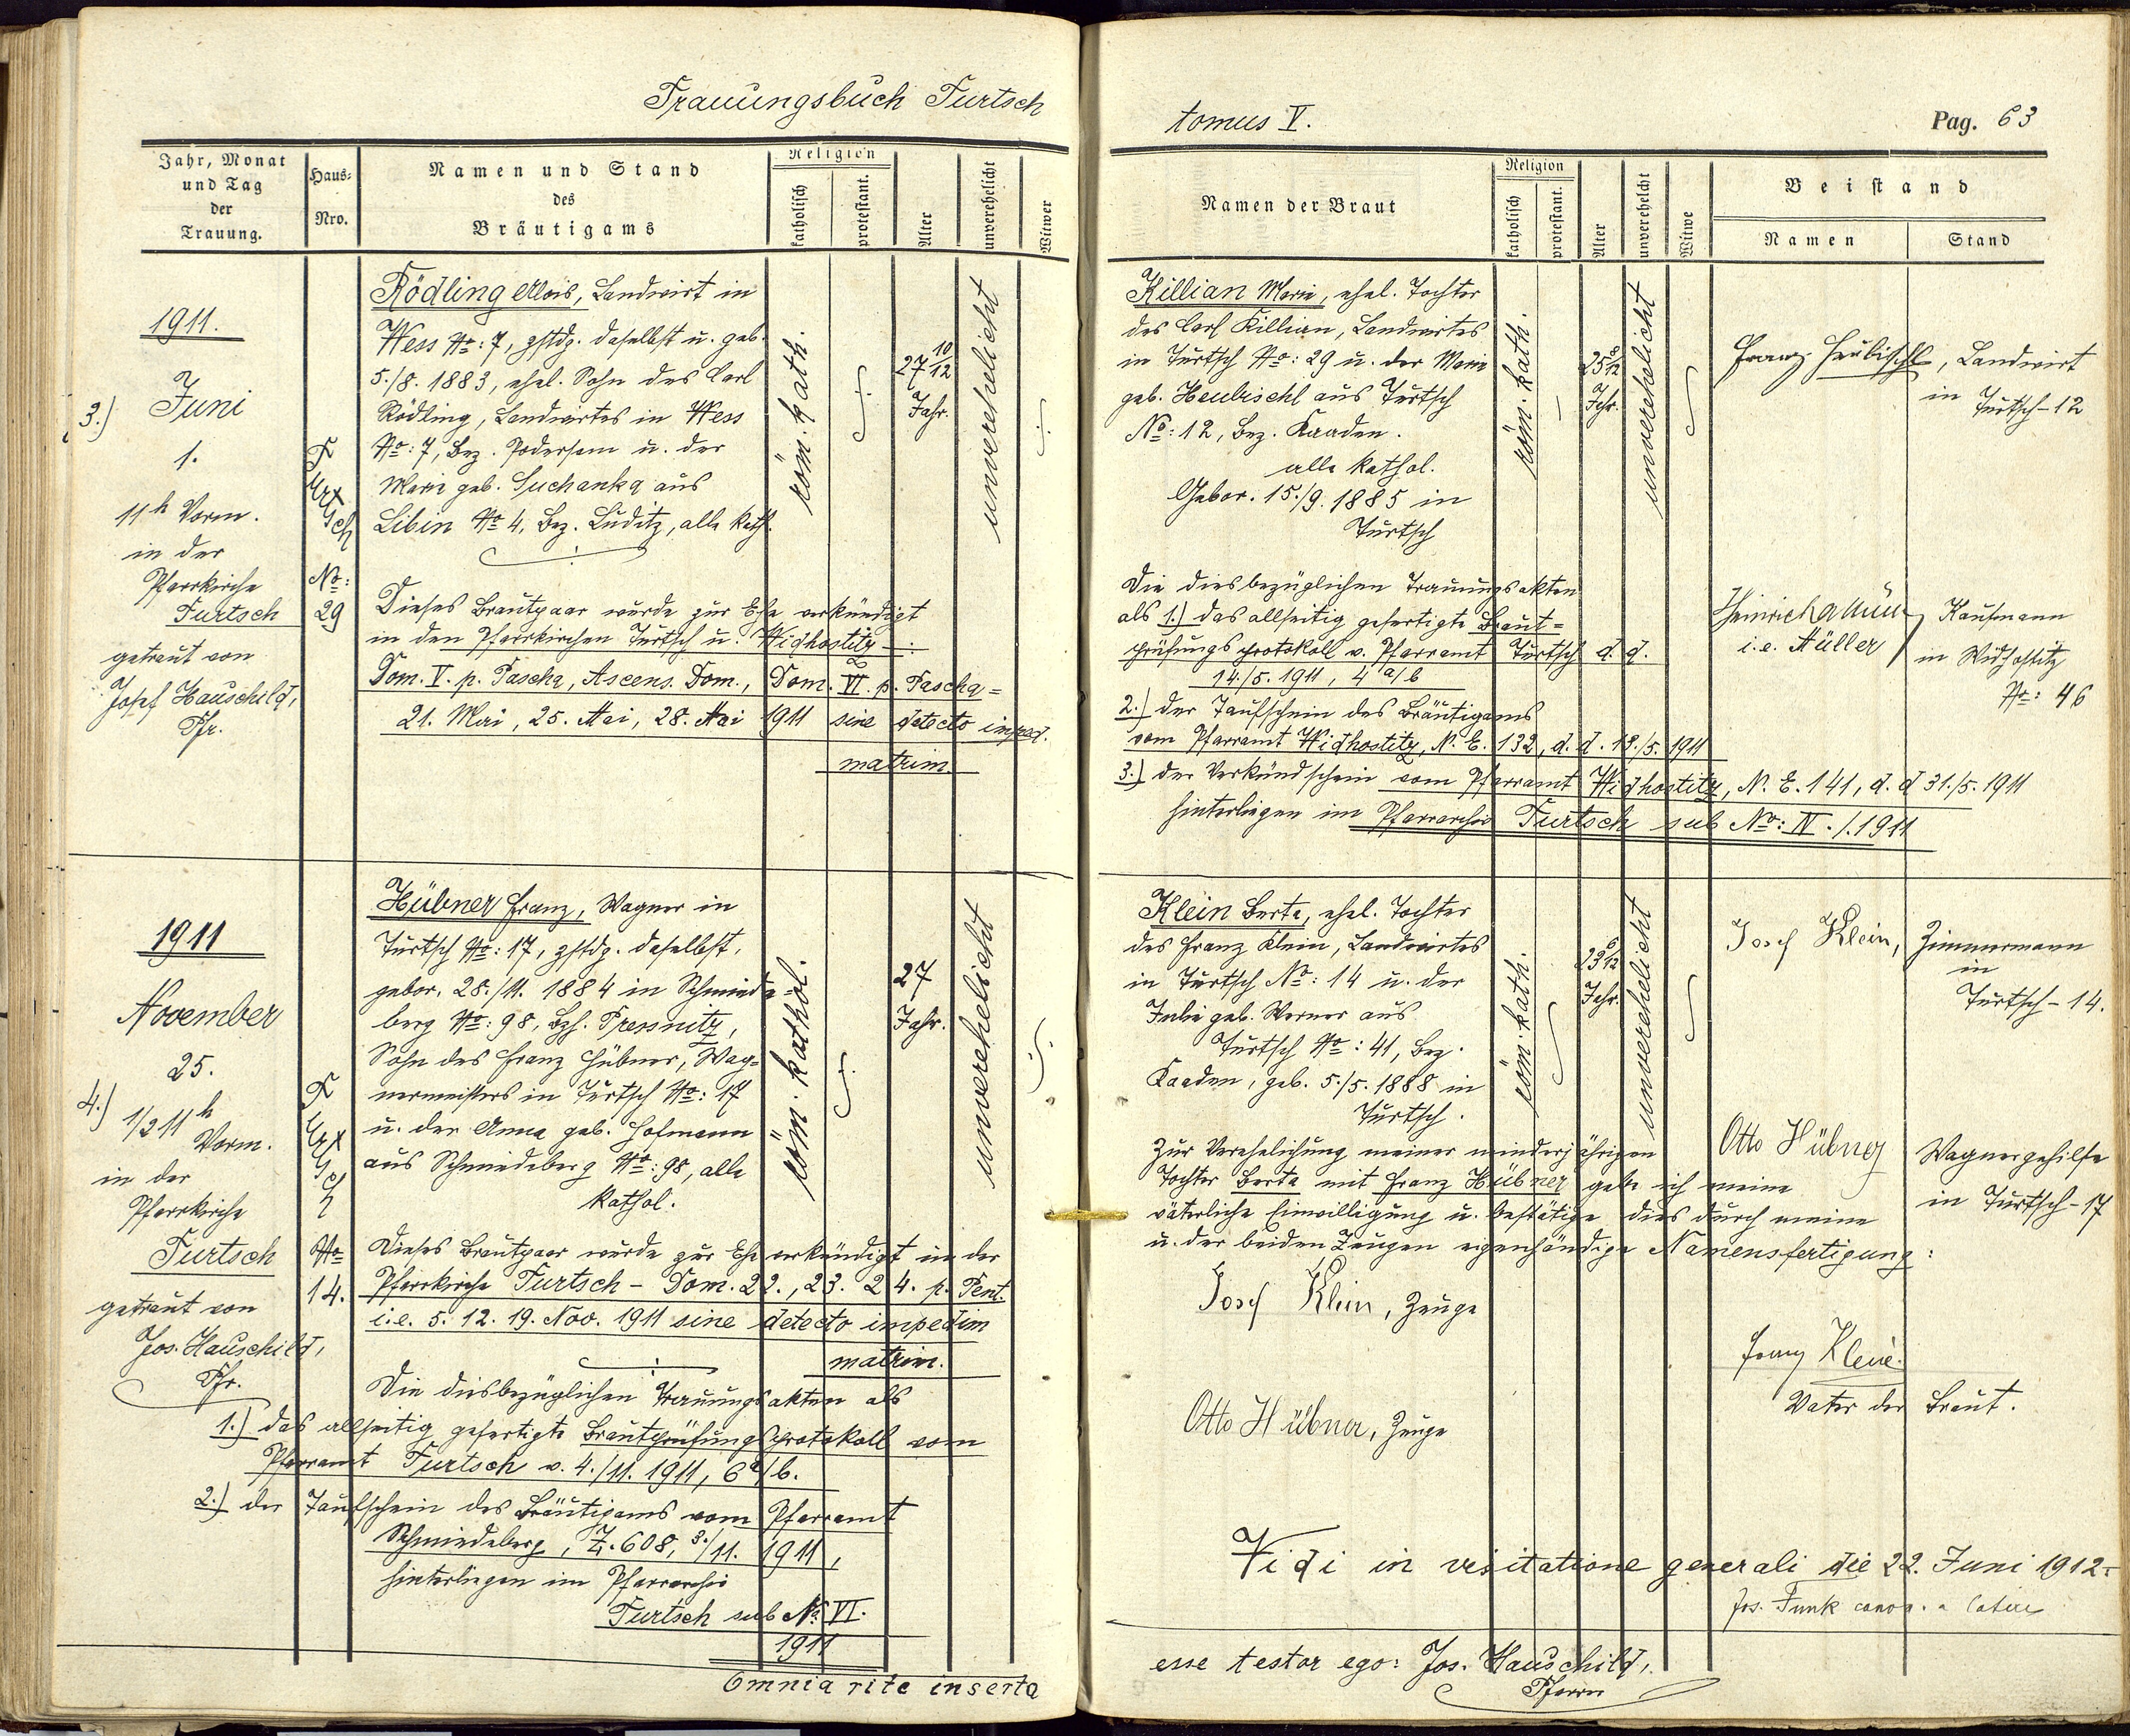 Trauungsbuch Turtsch
Jahr, Monat
und Tag
der
Trauung.
Haus-
Nro.
Namen und Stand
des
Bräutigams
Religion
katholisch
protestant.
Alter
unverehelicht
Witwer
1911.
3.) Juni
1.
11h Vorm.
in der
Pfarrkirche
Turtsch
getraut von
Josef Hauschild,
Pfr.
Turtsch
No:
29
Rödling Alois, Landwirt in
Wess No: 7, zstdg. daselbst u. geb.
5./8. 1883, ehel. Sohn des Carl
Rödling, Landwirtes in Wess
No: 7, Bez. Podersam u. der
Marie geb. Suchanka aus
Libin No 4, Bez. Luditz, alle kath.
röm. kath.
27 10/12
Jahr.
unverehelicht
Dieses Brautpaar wurde zur Ehe verkündigt
in den Pfarrkirchen Turtsch u. Widhostitz
Dom. V. p. Pascha, Ascens. Dom., Dom. VI. p. Pascha =
21. Mai, 25. Mai, 28. Mai 1911 sine detecto imped.
matrim.
1911
November
25.
4.) 1/2 11h
Vorm.
in der
Pfarrkirche
Turtsch
getraut von
Jos. Hauschild,
Pfr.
Turtsch
No
14.
Hübner Franz, Wagner in
Turtsch No: 17, zstdg. daselbst,
gebor. 28./11. 1884 in Schmiede-
berg No: 98, Bzh. Pressnitz,
Sohn des Franz Hübner, Wag-
nermeisters in Turtsch No: 17
u. der Anna geb. Hofmann
aus Schmiedeberg No: 98, alle
kathol.
röm. kathol.
27
Jahr.
unverehelicht
Dieses Brautpaar wurde zur Ehe verkündigt in der
Pfarrkirche Turtsch - Dom. 22., 23. 24. p. Pent.
i. e. 5. 12. 19. Nov. 1911 sine detecto impedim
matrim.
Die diesbezüglichen Trauungsakten als
1.) das allseitig gefertigte Brautprüfungsprotokoll vom
Pfarramt Turtsch v. 4./11. 1911, 6 a/b.
2.) der Taufschein des Bräutigams vom Pfarramt
Schmiedeberg, Z. 608, 3./11. 1911,
hinterliegen im Pfarrarchiv
Turtsch sub No VI.
1911
Omnia rite inserta
tomus V.
Pag. 63
Namen der Braut
Religion
katholisch
protestant.
Alter
unverehelicht
Witwe
Beistand
Namen
Stand
Killian Marie, ehel. Tochter
des Carl Killian, Landwirtes
in Turtsch No: 29 u. der Marie
geb. Heubischl aus Turtsch
No: 12, Bez. Kaaden.
alle kathol.
Gebor. 15./9. 1885 in
Turtsch
röm. kath.
25 8/12
Jahr.
unverehelicht
Franz Heubischl, Landwirt
in Turtsch-12
Die diesbezüglichen Trauungsakten
als 1.) das allseitig gefertigte Braut-
prüfungsprotokoll v. Pfarramt Turtsch d. d.
14./5. 1911, 4 a/b
2.) der Taufschein des Bräutigams
vom Pfarramt Widhostitz, N. E. 132, d. d. 18./5. 1911
3.) der Verkündschein vom Pfarramt Widhostitz, N. E. 141, d. d 31./5. 1911
hinterliegen im Pfarrarchiv Turtsch sub No: IV./.1911
Heinrich
i. e. Müller
Kaufmann
in Widhostitz
No: 46
Klein Berta, ehel. Tochter
des Franz Klein, Landwirtes
in Turtsch No: 14 u. der
Julie geb. Werner aus
Turtsch No: 41, Bez.
Kaaden, geb. 5./5. 1888 in
Turtsch.
röm. kath.
23 6/12
Jahr.
unverehelicht
Josef Klein, Zimmermann
in
Turtsch-14.
Otto Hübner
Wagnergehilfe
in Turtsch-17
Zur Verehelichung meiner minderjährigen
Tochter Berta mit Franz Hübner gebe ich meine
väterliche Einwilligung u. bestätige dies durch meine
u. der beiden Zeugen eigenhändige Namensfertigung:
Josef Klein, Zeuge
Franz Klein
Vater der Braut.
Otto Hübner, Zeuge
Vidi in visitatione generali die 22. Juni 1912.
Jos. Funk canon. a latere
esse testor ego: Jos. Hauschild,
Pfarrer